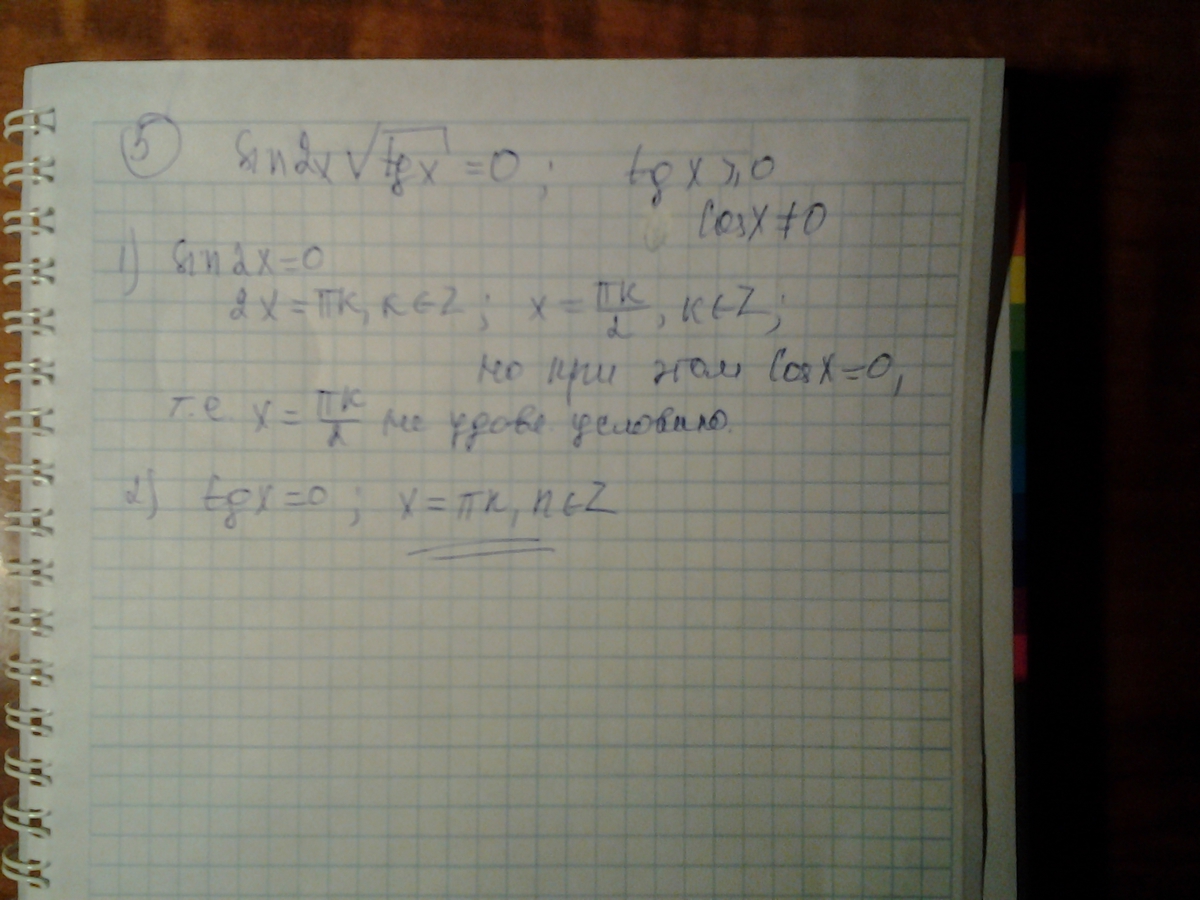 5 sin2x√tgx = 0 ; tg x ≥ 0
cosx ≠ 0
1) sin2x=0
2x = πк, к∈Z ; x = πк/2, к∈Z ;
но при этом cosx=0,
т.е. x = πк/2 не удовл. условию.
2) tgx=0 ; x = πк, к∈Z